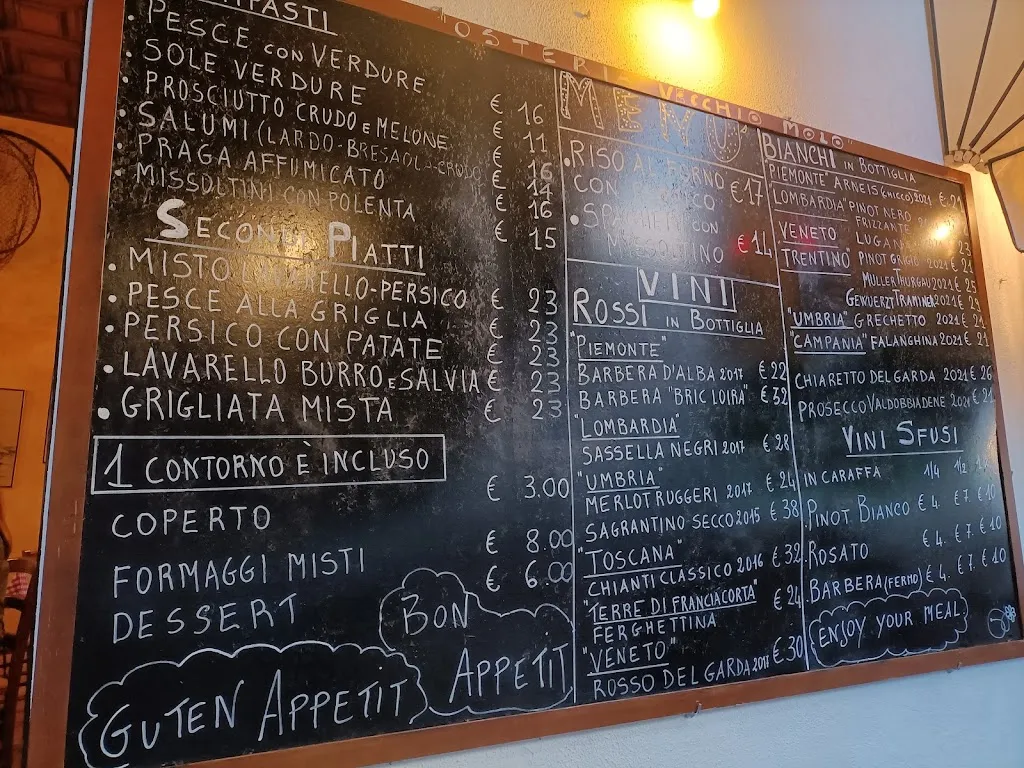 OSTERIA "VECCHIO MOLO"
ANTIPASTI
• PESCE CON VERDURE € 16
• SOLE VERDURE € 11
• PROSCIUTTO CRUDO e MELONE € 16
• SALUMI (LARDO-BRESAOLA-CRUDO € 14
• PRAGA AFFUMICATO € 16
• MISSOLTINI CON POLENTA € 15
SECONDI PIATTI
• MISTO LAVARELLO-PERSICO € 23
• PESCE ALLA GRIGLIA € 23
• PERSICO CON PATATE € 23
• LAVARELLO BURRO e SALVIA € 23
• GRIGLIATA MISTA € 23
1 CONTORNO È INCLUSO
COPERTO € 3.00
FORMAGGI MISTI € 8.00
DESSERT € 6.00
GUTEN APPETIT
BON
APPETIT
MENU
• RISO AL FORNO
CON € 17
• CON
MISSOLTINO € 14
VINI
ROSSI IN BOTTIGLIA
"PIEMONTE"
BARBERA D'ALBA 2017 € 22
BARBERA "BRIC LOIRA" € 32
"LOMBARDIA"
SASSELLA NEGRI 2017 € 28
"UMBRIA"
MERLOT RUGGERI 2017 € 24
SAGRANTINO SECCO 2015 € 38
"TOSCANA"
CHIANTI CLASSICO 2016 € 32
"TERRE DI FRANCIACORTA"
FERGHETTINA € 24
"VENETO"
ROSSO DEL GARDA 2017 € 30
BIANCHI IN BOTTIGLIA
PIEMONTE ARNEIS (CHICCO) 2021 € 21
"LOMBARDIA" PINOT NERO
FRIZZANTE
VENETO LUGANA 23
TRENTINO PINOT GRIGIO 2021 € 21
MÜLLER THURGAU 2021 € 25
GEWUERZTRAMINER 2021 €
"UMBRIA" GRECHETTO 2021 € 21
"CAMPANIA" FALANGHINA 2021 € 21
CHIARETTO DEL GARDA 2021 € 26
PROSECCO VALDOBBIADENE 2021 € 21
VINI SFUSI
IN CARAFFA 1/4 1/2
PINOT BIANCO € 4. € 7. € 10
ROSATO € 4. € 7. € 10
BARBERA (FERMO) € 4. € 7. € 10
ENJOY YOUR MEAL